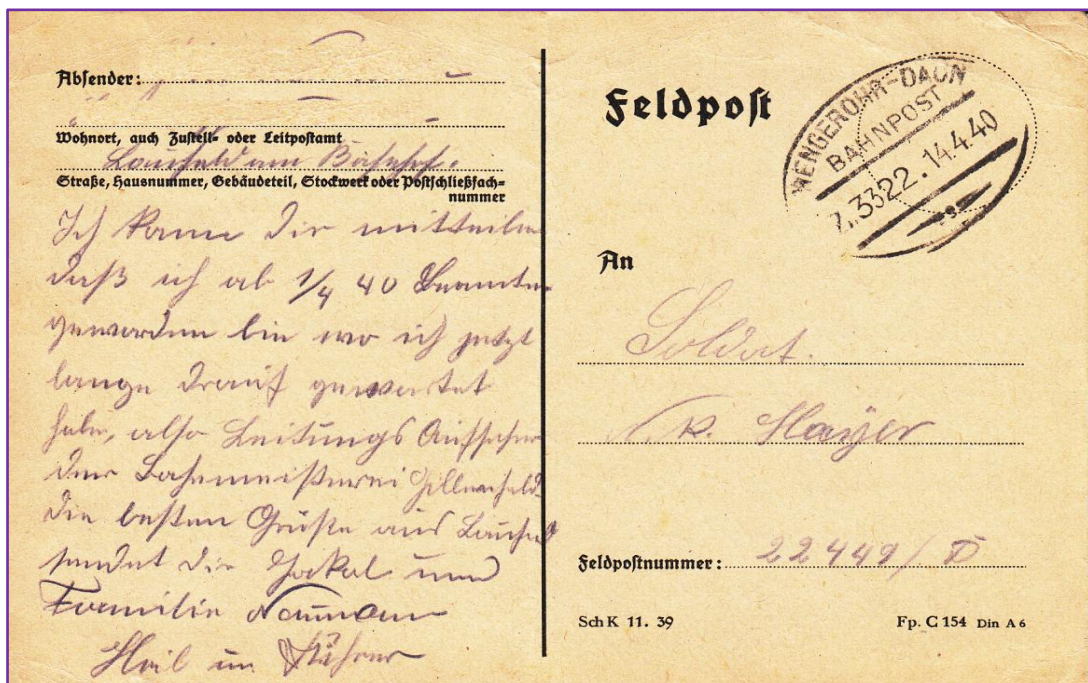 Absender:
Wohnort, auch Zustell- oder Leitpostamt
Laufeld am Bahnhof.
Straße, Hausnummer, Gebäudeteil, Stockwerk oder Postschließfach-
nummer
Ich kann Dir mitteilen
daß ich ab 1/4 40 Beamter
geworden bin wo ich jetzt
lange drauf gewartet
habe, also Leitungs Aufseher
der Bahnmeisterei Gillenfeld
die besten Grüße aus Laufeld
sendet Dir und
Familie
Heil
Feldpost
WENGEROHR-DAUN
BAHNPOST
Z.3322.14.4.40
An
Soldat.
Mayer
Feldpostnummer: 22449/D
Sch K 11. 39
Fp. C 154 Din A 6